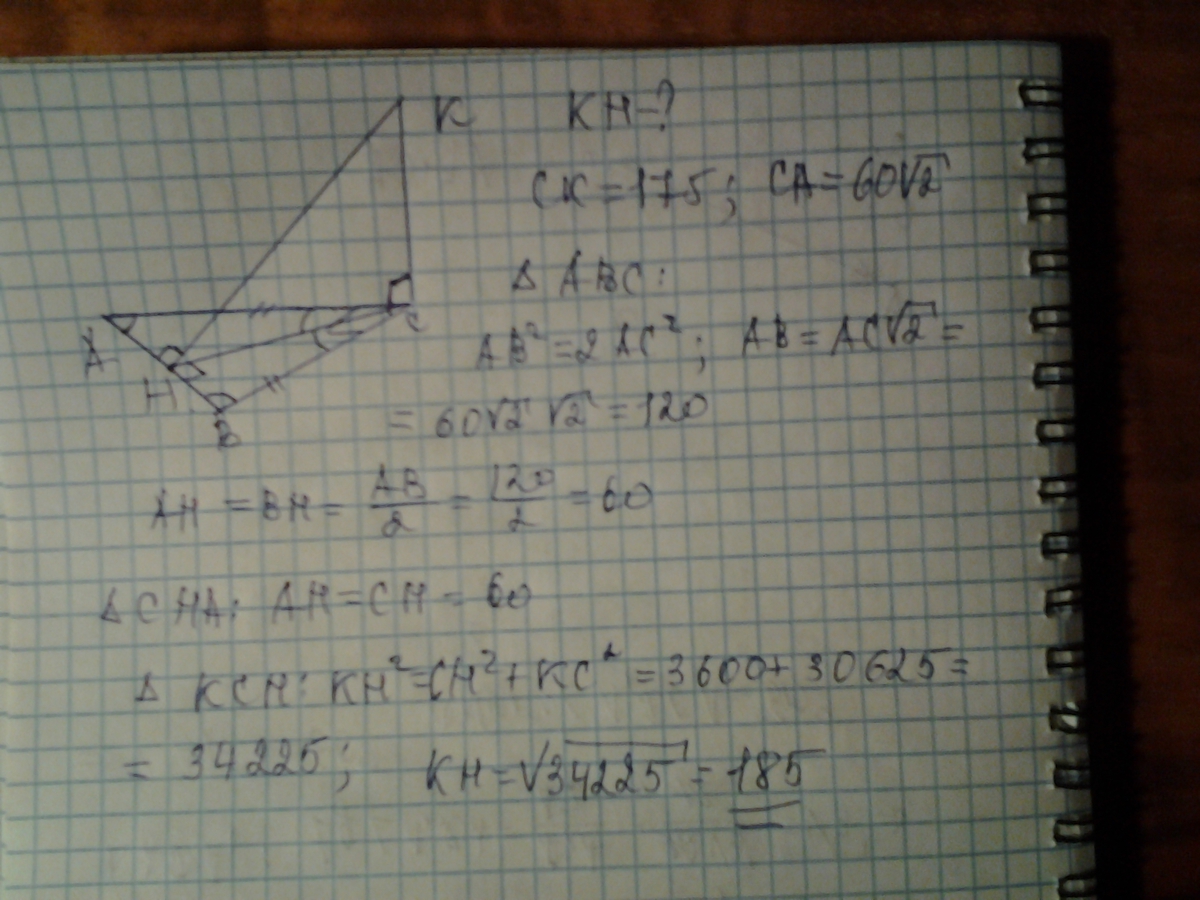 K KH-?
CK=175; CA=60√2
Δ ABC:
A C
AB²=2AC²; AB=AC√2=
H
B
= 60√2 √2 = 120
AH = BH = AB/2 = 120/2 = 60
Δ CHA: AH=CH=60
Δ KCH: KH²=CH²+KC²=3600+30625=
= 34225; KH=√34225=185